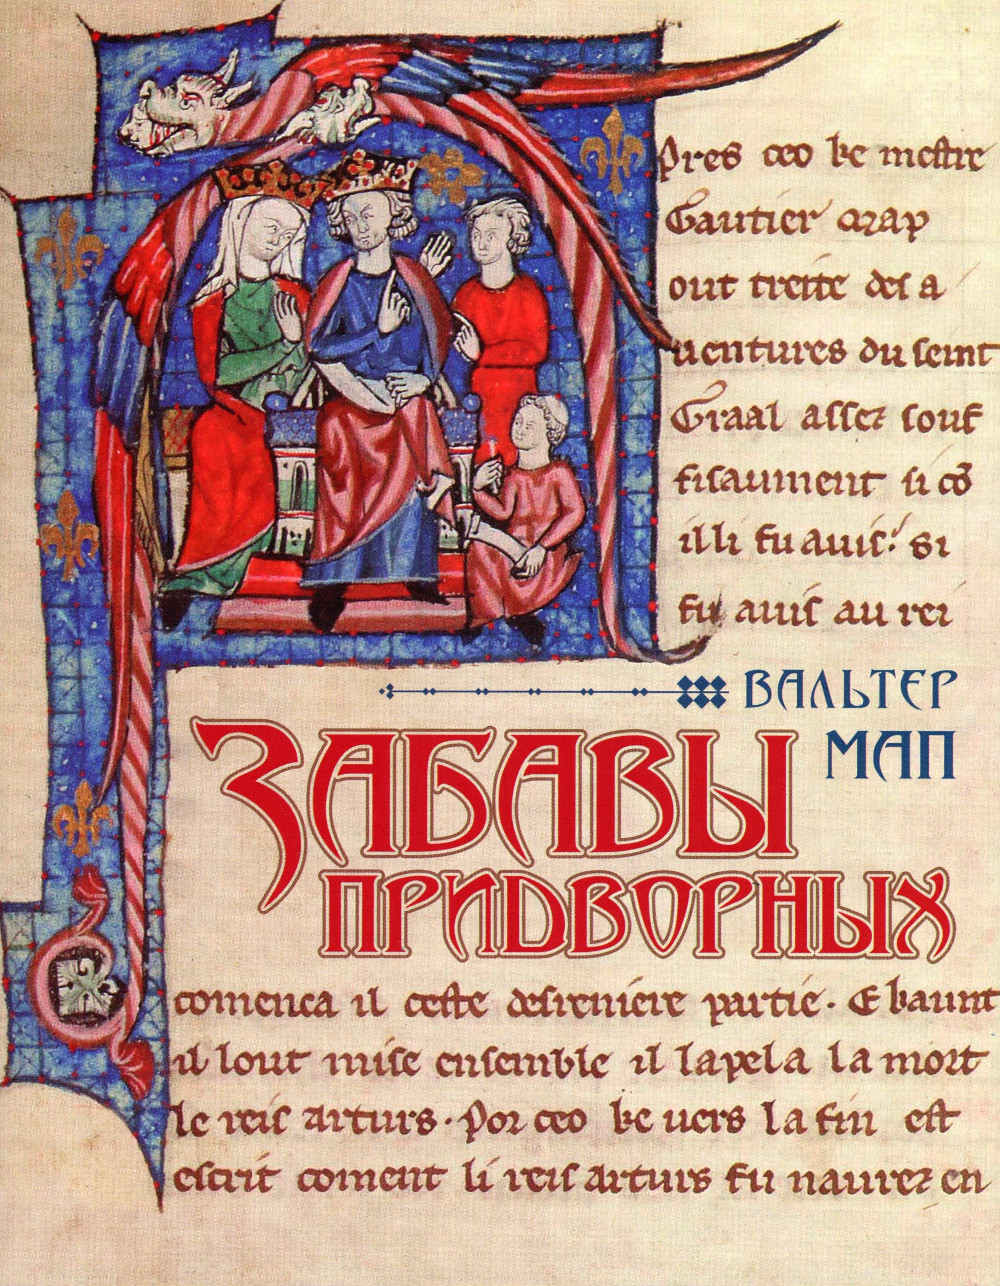 Apres ceo ke mestre
Gautier Map
out treite des a
uentures du seint
Graal assez souf
fisaument si cō
il li fu auis. si
fu auis au rei
ВАЛЬТЕР
МАП
ЗАБАВЫ
ПРИДВОРНЫХ
comenca il ceste desreniere partie. E kaunt
il lout mise ensemble il lapela la mort
le reis arturs. Por ceo ke uers la fin est
escrit coment li reis arturs fu naurez en